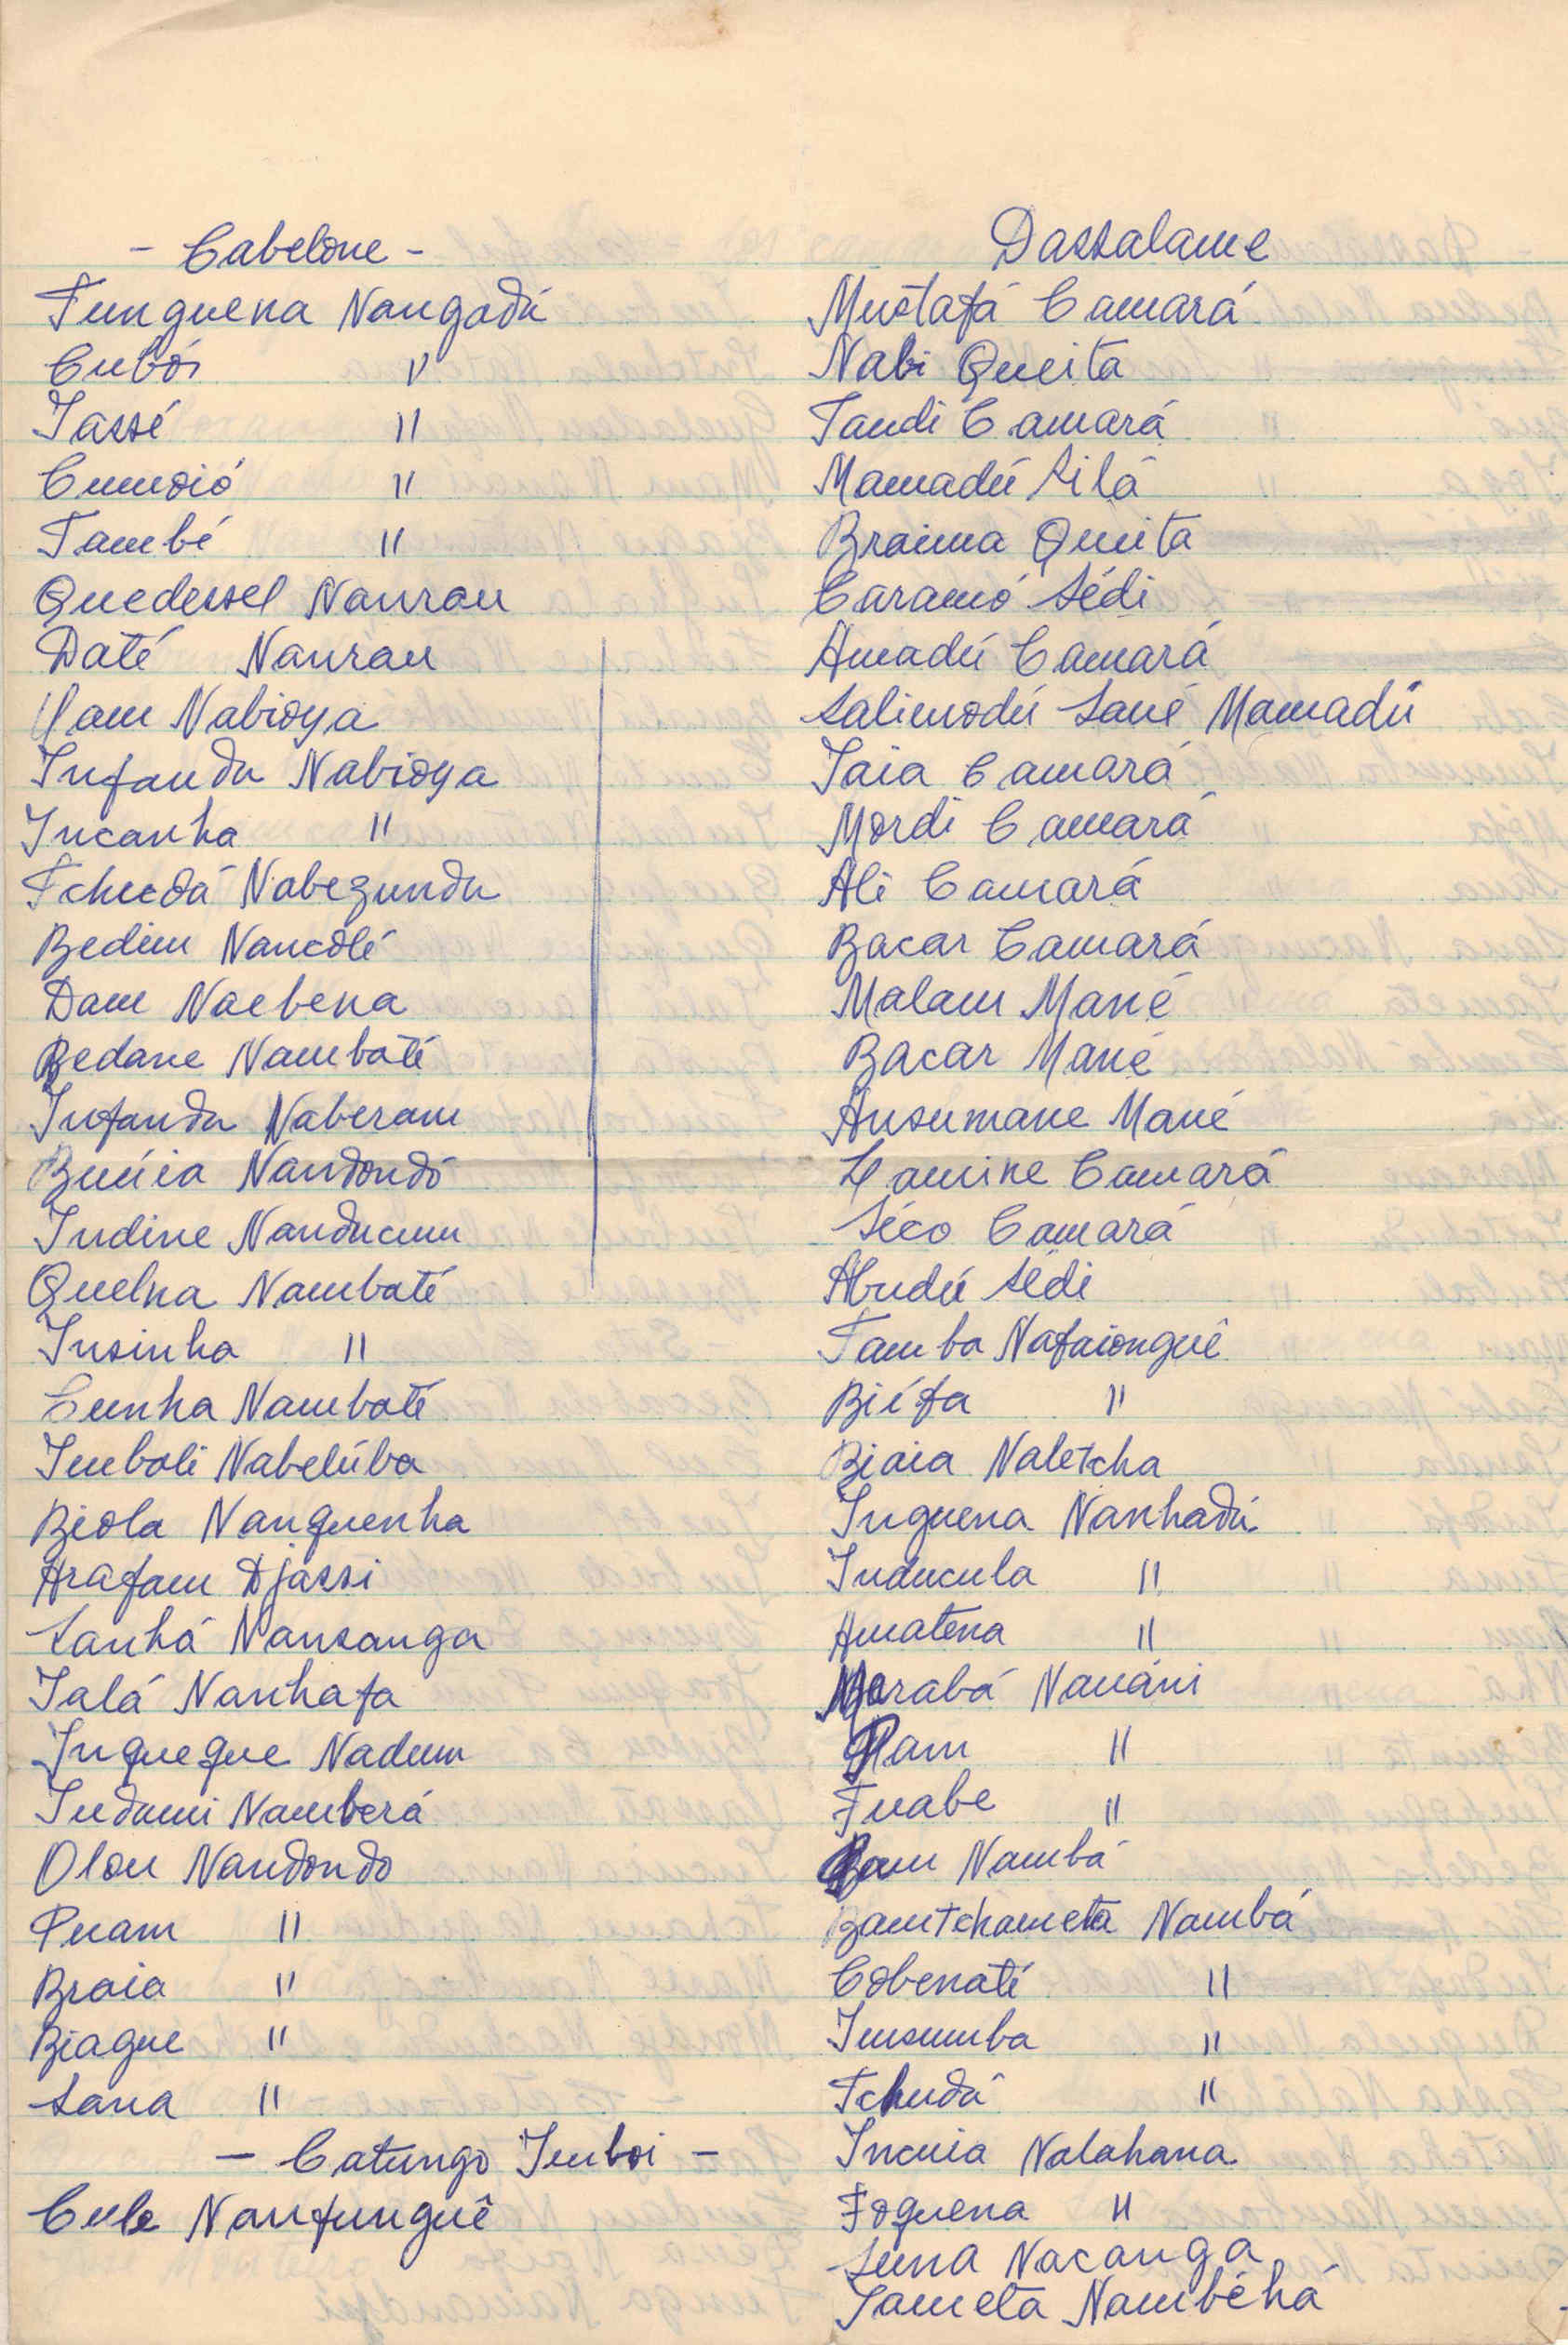 - Cabelone -
Funguena Nangadú
Cubói "
Iassé "
Cumoió "
També "
Quedessel Nanrau
Daté Nanrau
Yam Nabioya
Infanda Nabioya
Incanha "
Tchudá Nabezunda
Bedim Nancolé
Dam Naebena
Bedane Nambaté
Infanda Naberam
Buúia Nandondó
Indine Nanducum
Quelna Nambaté
Insinha "
Cunha Nambaté
Imbali Nabelúba
Biola Nanquenha
Arafam Djassi
Sanhá Nansanga
Ialá Nanhafa
Inqueque Nadum
Indami Namberá
Olou Nandondo
Puam "
Braia "
Biague "
Sana "
- Catungo Imboi -
Cule Nanfunguê
Dassalame
Mustafá Camará
Nabi Queita
Tandi Camará
Mamadú Silá
Braima Queita
Caramó Sédi
Amadú Camará
Salimodú Sané Mamadú
Iaia Camará
Mordi Camará
Ali Camará
Bacar Camará
Malam Mané
Bacar Mané
Ansumane Mané
Lamine Camará
Séco Camará
Abudú Sédi
Tamba Nafaionguê
Biéfa "
Biaia Naletcha
Inguena Nanhadú
Inducula "
Amatena "
Marabá Nauáni
"
Fuabe "
Bam Nambá
Bamtchameta Nambá
Cobenaté "
Imsumba "
Tchudá "
Incuia Nalahana
Foquena "
Suna Nacanga
Iameta Nambéhá